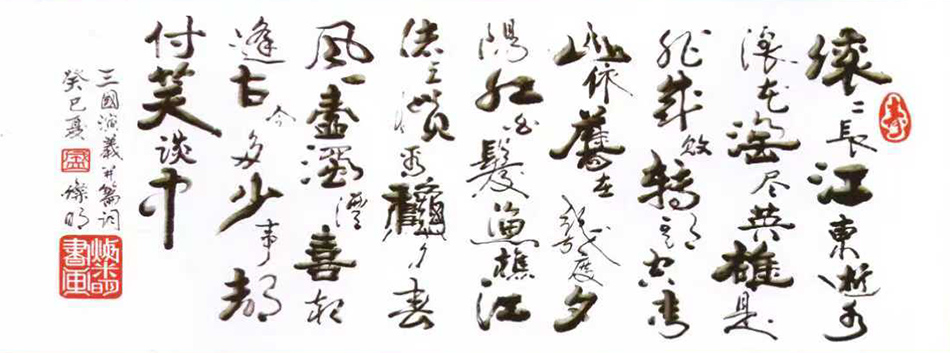 滚〻長江東逝水
浪花淘尽英雄是
非成敗转头空青
山依舊在幾度夕
陽红白髮漁樵江
渚上惯看龝月春
風一壶濁酒喜相
逢古今多少事都
付笑談中
三國演義开篇词
癸巳夏 燦明